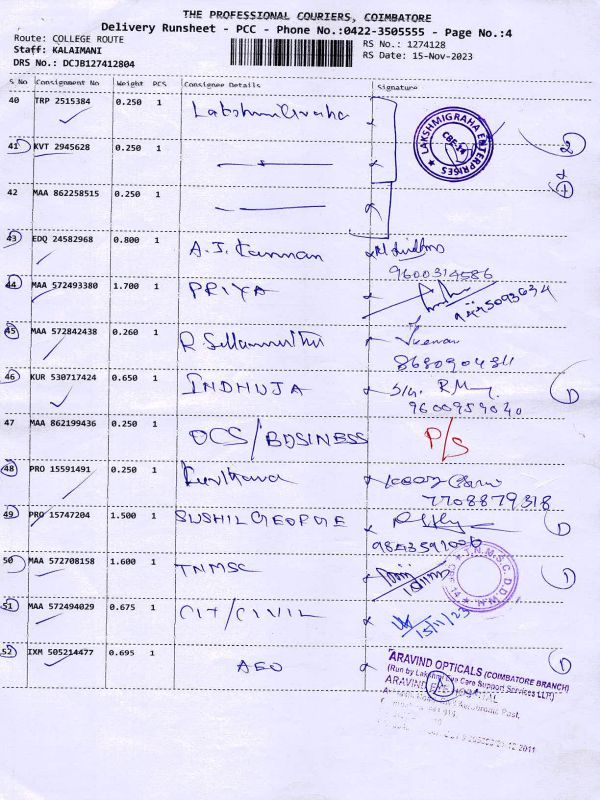 THE PROFESSIONAL COURIERS, COIMBATORE
Delivery Runsheet - PCC - Phone No.:0422-3505555 - Page No.:4
Route: COLLEGE ROUTE
RS No.: 1274128
Staff: KALAIMANI
RS Date: 15-Nov-2023
DRS No.: DCJB127412804
S No Consignment No Weight PCS Consignee Details Signature
40 TRP 2515384 0.250 1 Lakshmi Graha
LAKSHMIGRAHA ENTERPRISES CBE-14
41 KVT 2945628 0.250 1
2
42 MAA 862258515 0.250 1
43 EDQ 24582968 0.800 1 A.J. Kannan
9600314586
44 MAA 572493380 1.700 1 PRIYA
45 MAA 572842438 0.260 1
46 KUR 530717424 0.650 1 INDHUJA
9600959040
47 MAA 862199436 0.250 1 OCS/BUSINESS P/S
48 PRO 15591491 0.250 1
7708879318
49 PRO 15747204 1.500 1 SUSHIL GEORGE
50 MAA 572708158 1.600 1 TNMSC
51 MAA 572494029 0.675 1 CIT/CIVIL 15/11/23
52 IXM 505214477 0.695 1 AEO
ARAVIND OPTICALS (COIMBATORE BRANCH)
(Run by Lakshmi Eye Care Support Services LLP)
ARAVIND EYE HOSPITAL